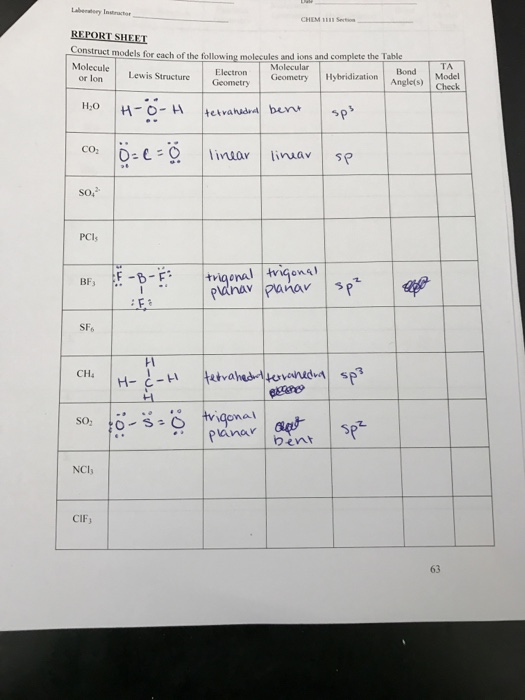 Laboratory Instructor
CHEM 1111 Section
REPORT SHEET
Construct models for each of the following molecules and ions and complete the Table
Molecule or Ion | Lewis Structure | Electron Geometry | Molecular Geometry | Hybridization | Bond Angle(s) | TA Model Check
H₂O | H-Ö-H | tetrahedral | bent | sp³
CO₂ | O=C=O | linear | linear | sp
SO₄²⁻
PCl₅
BF₃ | F-B-F | trigonal planar | trigonal planar | sp²
F
SF₆
H
CH₄ | H-C-H | tetrahedral | tetrahedral | sp³
H
SO₂ | O-S=O | trigonal planar | bent | sp²
NCl₃
ClF₃
63